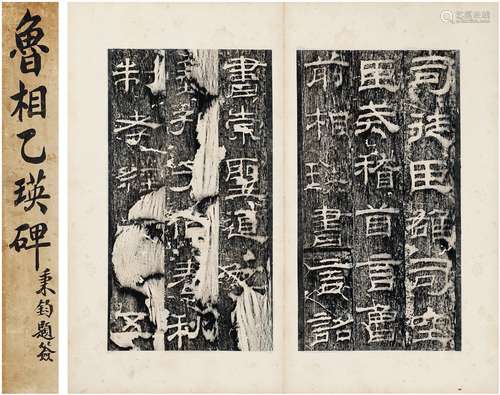 魯相乙瑛碑
秉鈞題簽
司徒臣雄司空
臣戒稽首言魯
前相瑛書言詔
書崇聖道
孔子作春秋
制孝經
五